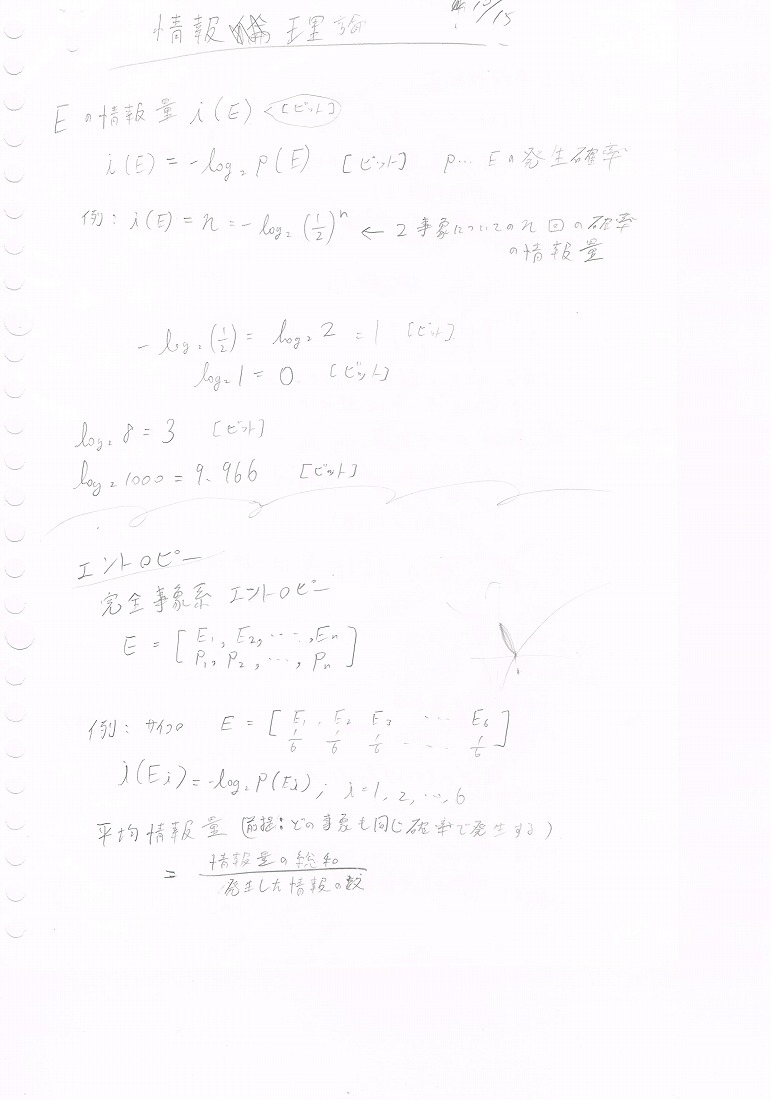 10/15
情報理論
Eの情報量 i(E) [ビット]
i(E) = -log₂ P(E) [ビット] P… Eの発生確率
例: i(E) = n = -log₂(1/2)ⁿ ← 2事象についてのn回の確率
の情報量
-log₂(1/2) = log₂2 = 1 [ビット]
log₂1 = 0 [ビット]
log₂8 = 3 [ビット]
log₂1000 = 9.966 [ビット]
エントロピー
完全事象系 エントロピー
E = [E₁, E₂, …, Eₙ
P₁, P₂, …, Pₙ]
例: サイコロ E = [E₁, E₂ E₃ … E₆
1/6 1/6 1/6 … 1/6]
i(Ei) = -log₂P(Ei); i=1, 2, …, 6
平均情報量 (前提:どの事象も同じ確率で発生する)
= 情報量の総和
発生した情報の数